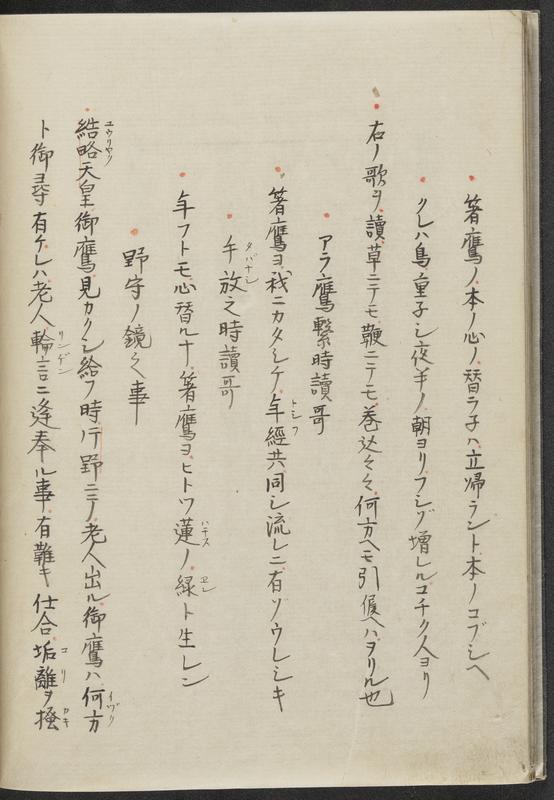 箸鷹ノ本ノ心ノ替ラ子ハ立帰ラント本ノコブシヘ
クレハ鳥童子シ夜半ノ朝ヨリフシゾ増レルコチク人ヨリ
右ノ歌ヲ讀草ニテモ鞭ニテモ巻込々々何方ヘモ引候ヘハヲリル也
アラ鷹繋時讀哥
箸鷹ヨ我ニカタシケ年經共同シ流レニ有ゾウレシキ
トシフ
手放之時讀哥
タバナシ
年フトモ心替ルナ箸鷹ヨヒトツ蓮ノ緑ト生レン
ハチス
ヱン
野守ノ鏡之事
結略天皇御鷹見カクシ給フ時行野ニテノ老人出ル御鷹ハ何方
ユウリヤク
イヅク
ト御尋有ケレハ老人輪言ニ逢奉ル事有難キ仕合垢離ヲ掻
リンゲン
コリ
カキ